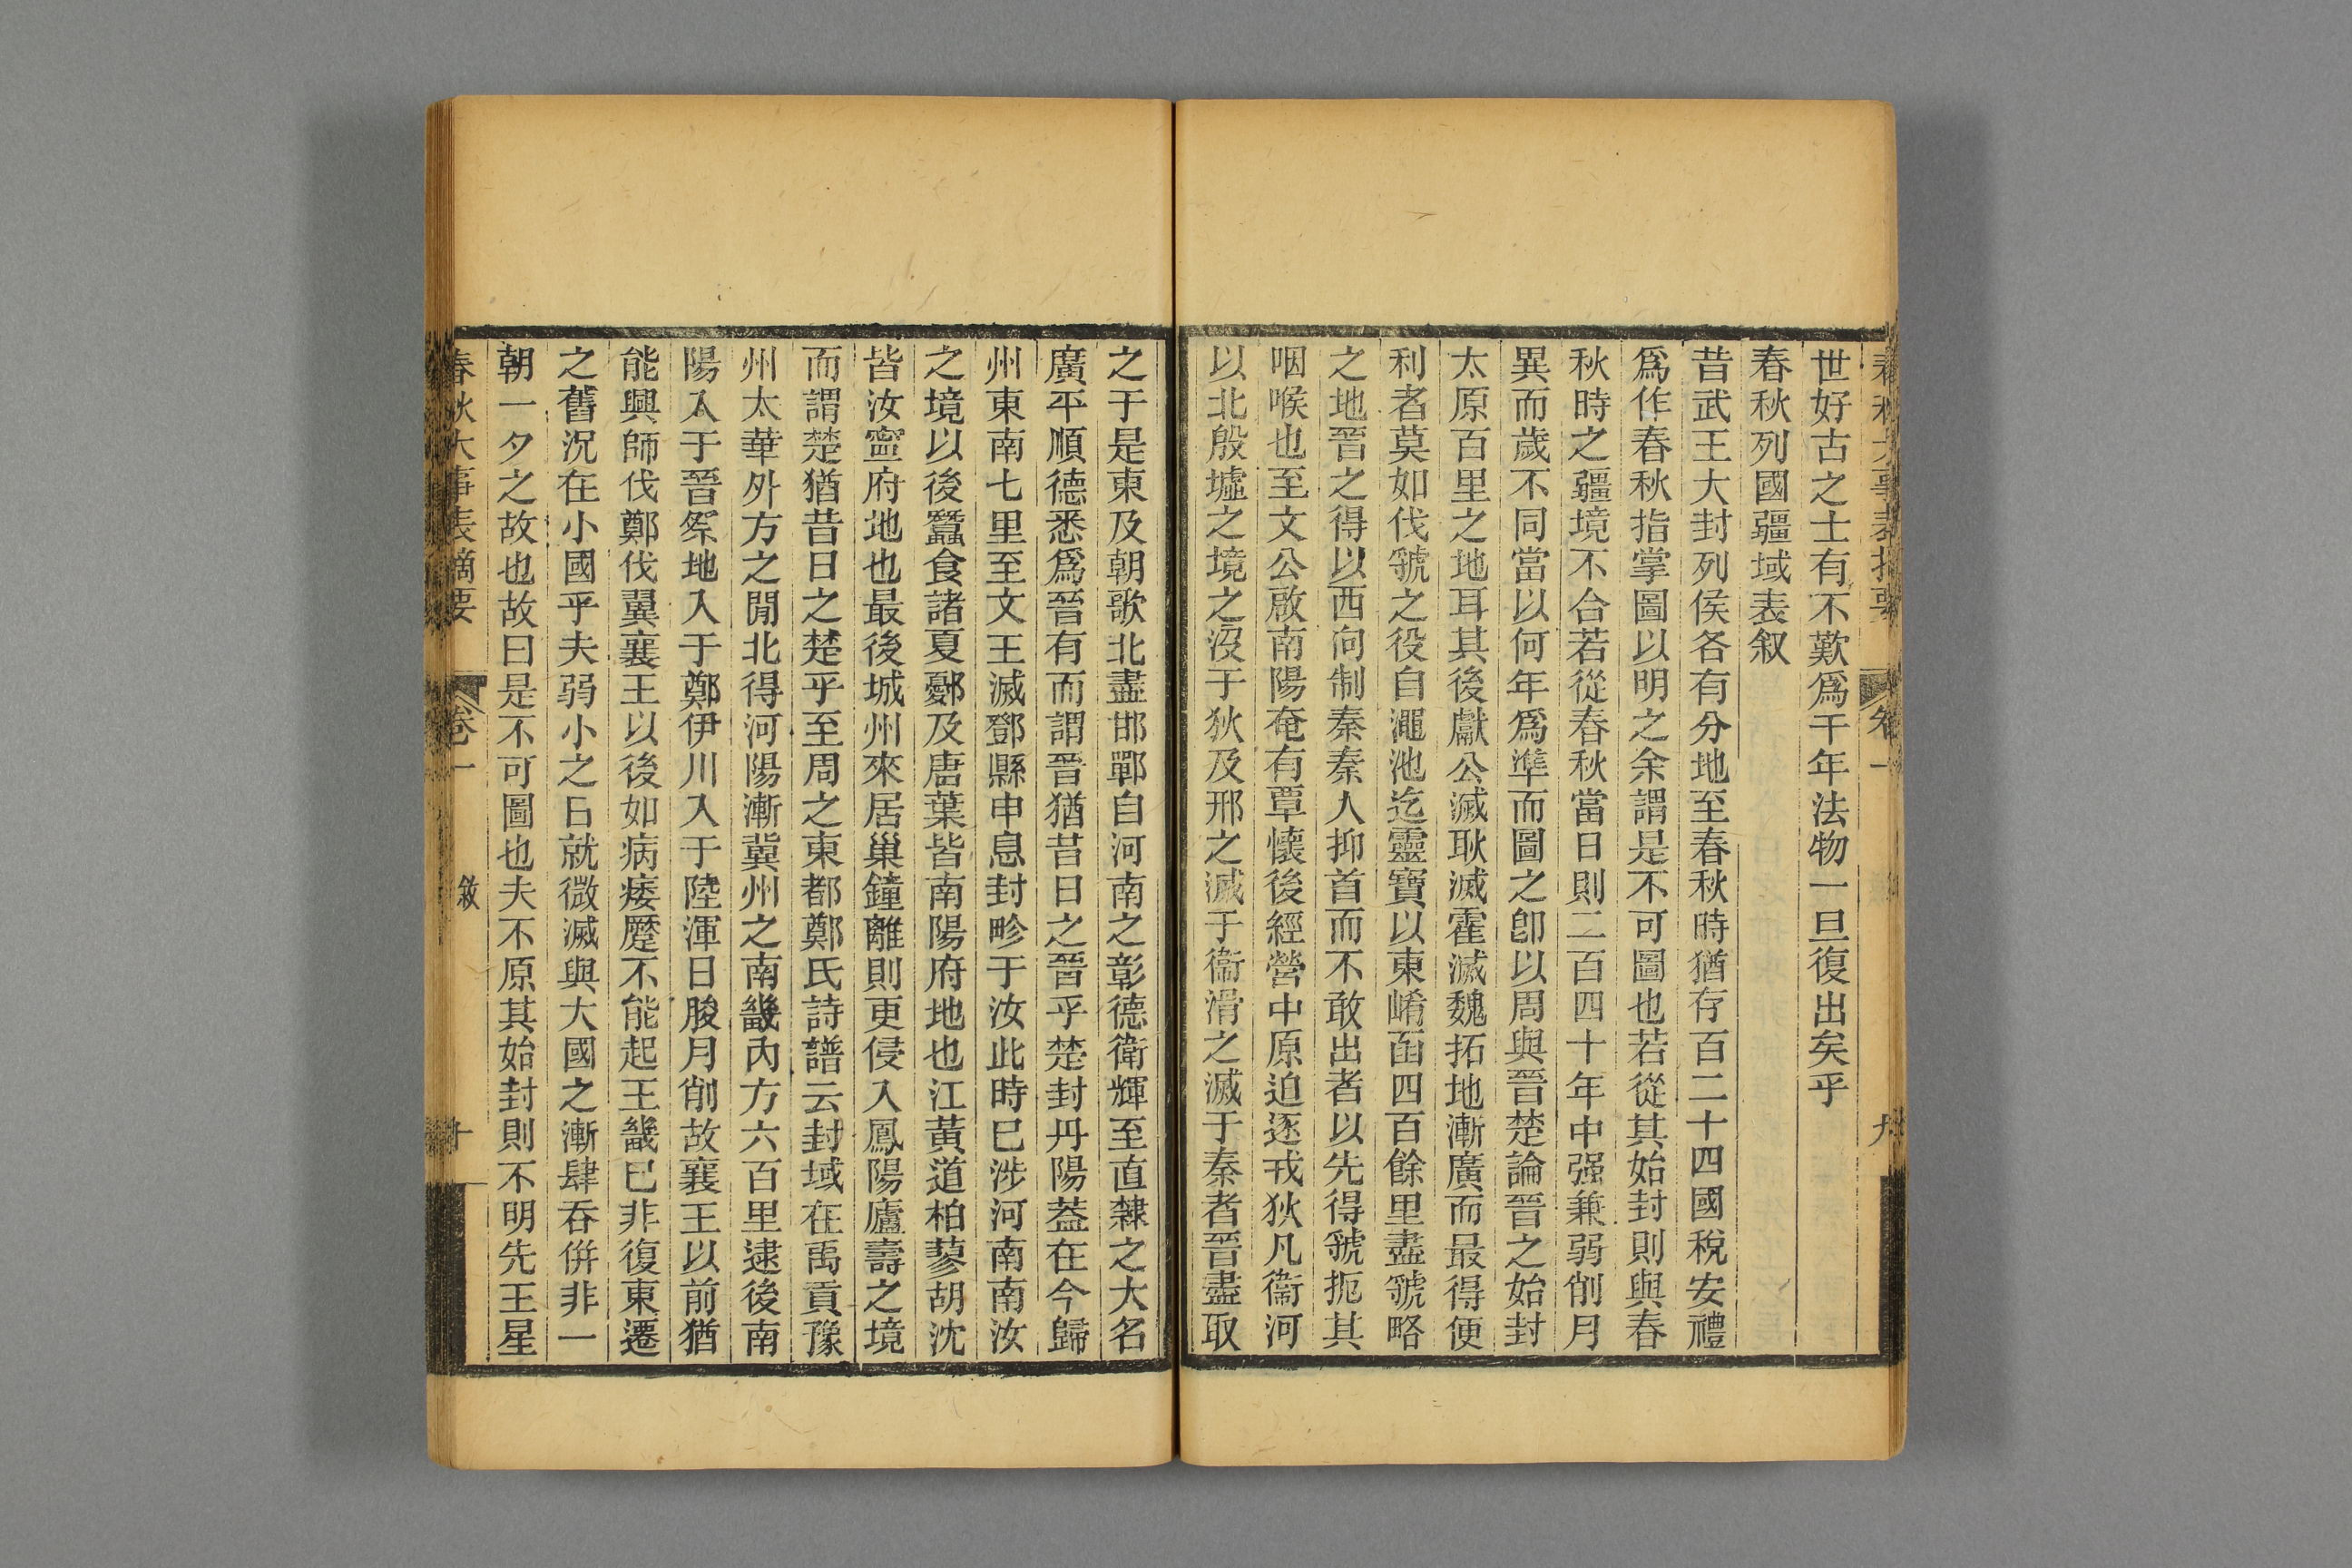 春秋大事表摘要 卷一 九
世好古之士有不歎爲千年法物一旦復出矣乎
春秋列國疆域表叙
昔武王大封列侯各有分地至春秋時猶存百二十四國稅安禮
爲作春秋指掌圖以明之余謂是不可圖也若從其始封則與春
秋時之疆境不合若從春秋當日則二百四十年中强兼弱削月
異而歲不同當以何年爲準而圖之卽以周與晉楚論晉之始封
太原百里之地耳其後獻公滅耿滅霍滅魏拓地漸廣而最得便
利者莫如伐虢之役自澠池迄靈寶以東崤函四百餘里盡虢略
之地晉之得以西向制秦秦人抑首而不敢出者以先得虢扼其
咽喉也至文公啟南陽奄有覃懷後經營中原迫逐戎狄凡衞河
以北殷墟之境之沒于狄及邢之滅于衞滑之滅于秦者晉盡取
之于是東及朝歌北盡邯鄲自河南之彰德衛輝至直隸之大名
廣平順德悉爲晉有而謂晉猶昔日之晉乎楚封丹陽葢在今歸
州東南七里至文王滅鄧縣申息封畛于汝此時巳涉河南南汝
之境以後蠶食諸夏鄾及唐葉皆南陽府地也江黃道柏蓼胡沈
皆汝寧府地也最後城州來居巢鐘離則更侵入鳳陽廬壽之境
而謂楚猶昔日之楚乎至周之東都鄭氏詩譜云封域在禹貢豫
州太華外方之閒北得河陽漸冀州之南畿內方六百里逮後南
陽入于晉祭地入于鄭伊川入于陸渾日朘月削故襄王以前猶
能興師伐鄭伐翼襄王以後如病痿蹷不能起王畿已非復東遷
之舊況在小國乎夫弱小之日就微滅與大國之漸肆吞併非一
朝一夕之故也故曰是不可圖也夫不原其始封則不明先王星
春秋大事表摘要 卷一 敘 十